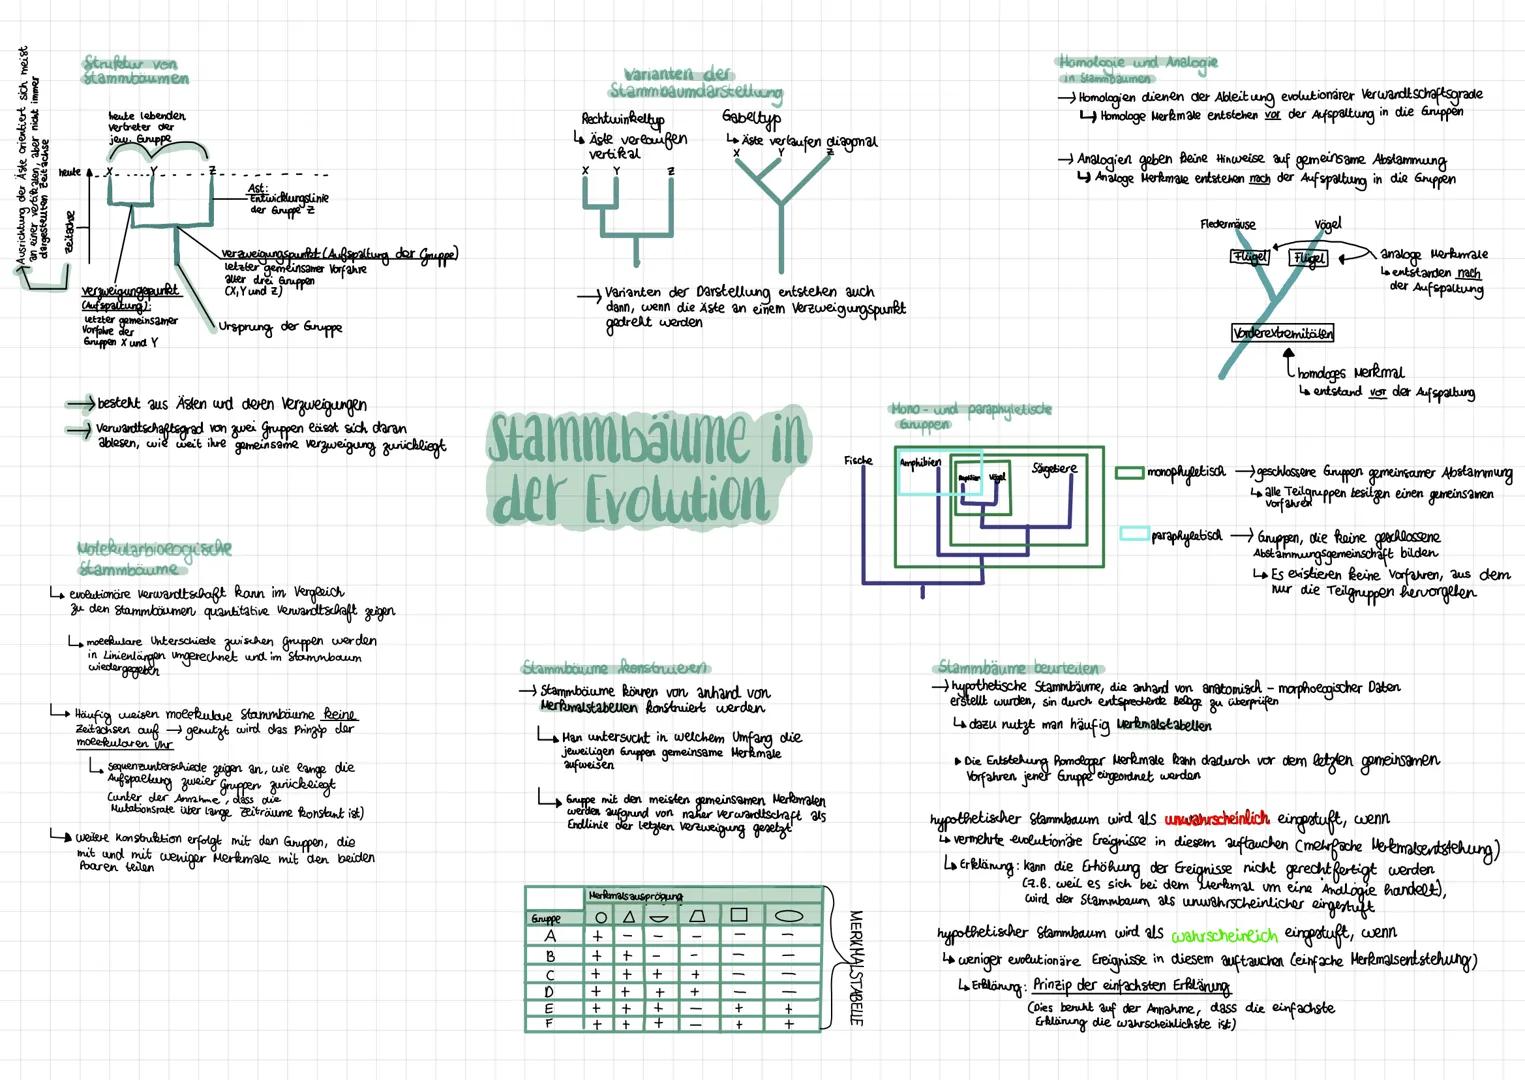 Struktur von
Stammbäumen
Ausrichtung der Äste orientiert sich meist
an einer vertikalen, aber nicht immer
dargestellten Zeitachse
heute lebenden
Vertreter der
jew. Gruppe
heute
X Y Z
Zeitachse
Ast:
Entwicklungslinie
der Gruppe Z
Verzweigungspunkt (Aufspaltung der Gruppe)
letzter gemeinsamer Vorfahre
aller drei Gruppen
(X, Y und Z)
Verzweigungspunkt
(Aufspaltung):
letzter gemeinsamer
Vorfahre der
Gruppen X und Y
Ursprung der Gruppe
→ besteht aus Ästen und deren Verzweigungen
→ Verwandtschaftsgrad von zwei Gruppen lässt sich daran
ablesen, wie weit ihre gemeinsame Verzweigung zurückliegt
Varianten der
Stammbaumdarstellung
Rechtwinkeltyp
↳ Äste verlaufen
vertikal
X Y Z
Gabeltyp
↳ Äste verlaufen diagonal
X Y Z
→ Varianten der Darstellung entstehen auch
dann, wenn die Äste an einem Verzweigungspunkt
gedreht werden
Homologie und Analogie
in Stammbäumen
→ Homologien dienen der Ableitung evolutionärer Verwandtschaftsgrade
↳ Homologe Merkmale entstehen vor der Aufspaltung in die Gruppen
→ Analogien geben keine Hinweise auf gemeinsame Abstammung
↳ Analoge Merkmale entstehen nach der Aufspaltung in die Gruppen
Fledermäuse Vögel
Flügel Flügel
analoge Merkmale
↳ entstanden nach
der Aufspaltung
Vorderextremitäten
homologes Merkmal
↳ entstand vor der Aufspaltung
Stammbäume in
der Evolution
Mono- und paraphyletische
Gruppen
Fische Amphibien Reptilien Vögel Säugetiere
monophyletisch → geschlossene Gruppen gemeinsamer Abstammung
↳ alle Teilgruppen besitzen einen gemeinsamen
Vorfahren
paraphyletisch → Gruppen, die keine geschlossene
Abstammungsgemeinschaft bilden
↳ Es existieren keine Vorfahren, aus dem
nur die Teilgruppen hervorgehen
Molekularbiologische
Stammbäume
↳ evolutionäre Verwandtschaft kann im Vergleich
zu den Stammbäumen quantitative Verwandtschaft zeigen
↳ molekulare Unterschiede zwischen Gruppen werden
in Linienlängen umgerechnet und im Stammbaum
wiedergegeben
↳ Häufig weisen molekulare Stammbäume keine
Zeitachsen auf → genutzt wird das Prinzip der
molekularen Uhr
↳ Sequenzunterschiede zeigen an, wie lange die
Aufspaltung zweier Gruppen zurückliegt
(unter der Annahme, dass die
Mutationsrate über lange Zeiträume konstant ist)
↳ weitere Konstruktion erfolgt mit den Gruppen, die
mit und mit weniger Merkmale mit den beiden
Paaren teilen
Stammbäume konstruieren
→ Stammbäume können von anhand von
Merkmalstabellen konstruiert werden
↳ Man untersucht in welchem Umfang die
jeweiligen Gruppen gemeinsame Merkmale
aufweisen
↳ Gruppe mit den meisten gemeinsamen Merkmalen
werden aufgrund von naher Verwandtschaft als
Endlinie der letzten Verzweigung gesetzt
Merkmalsausprägung
Gruppe
A + − − − − −
B + + − − − −
C + + + + − −
D + + + + − −
E + + + − + +
F + + + − + +
MERKMALSTABELLE
Stammbäume beurteilen
→ hypothetische Stammbäume, die anhand von anatomisch-morphologischer Daten
erstellt wurden, sin durch entsprechende Belege zu überprüfen
↳ dazu nutzt man häufig Merkmalstabellen
▸ Die Entstehung homologer Merkmale kann dadurch vor dem letzten gemeinsamen
Vorfahren jener Gruppe eingeordnet werden
hypothetischer Stammbaum wird als unwahrscheinlich eingestuft, wenn
↳ vermehrte evolutionäre Ereignisse in diesem auftauchen (mehrfache Merkmalsentstehung)
↳ Erklärung: kann die Erhöhung der Ereignisse nicht gerechtfertigt werden
(z.B. weil es sich bei dem Merkmal um eine Analogie handelt),
wird der Stammbaum als unwahrscheinlicher eingestuft
hypothetischer Stammbaum wird als wahrscheinlich eingestuft, wenn
↳ weniger evolutionäre Ereignisse in diesem auftauchen (einfache Merkmalsentstehung)
↳ Erklärung: Prinzip der einfachsten Erklärung
(Dies beruht auf der Annahme, dass die einfachste
Erklärung die wahrscheinlichste ist)